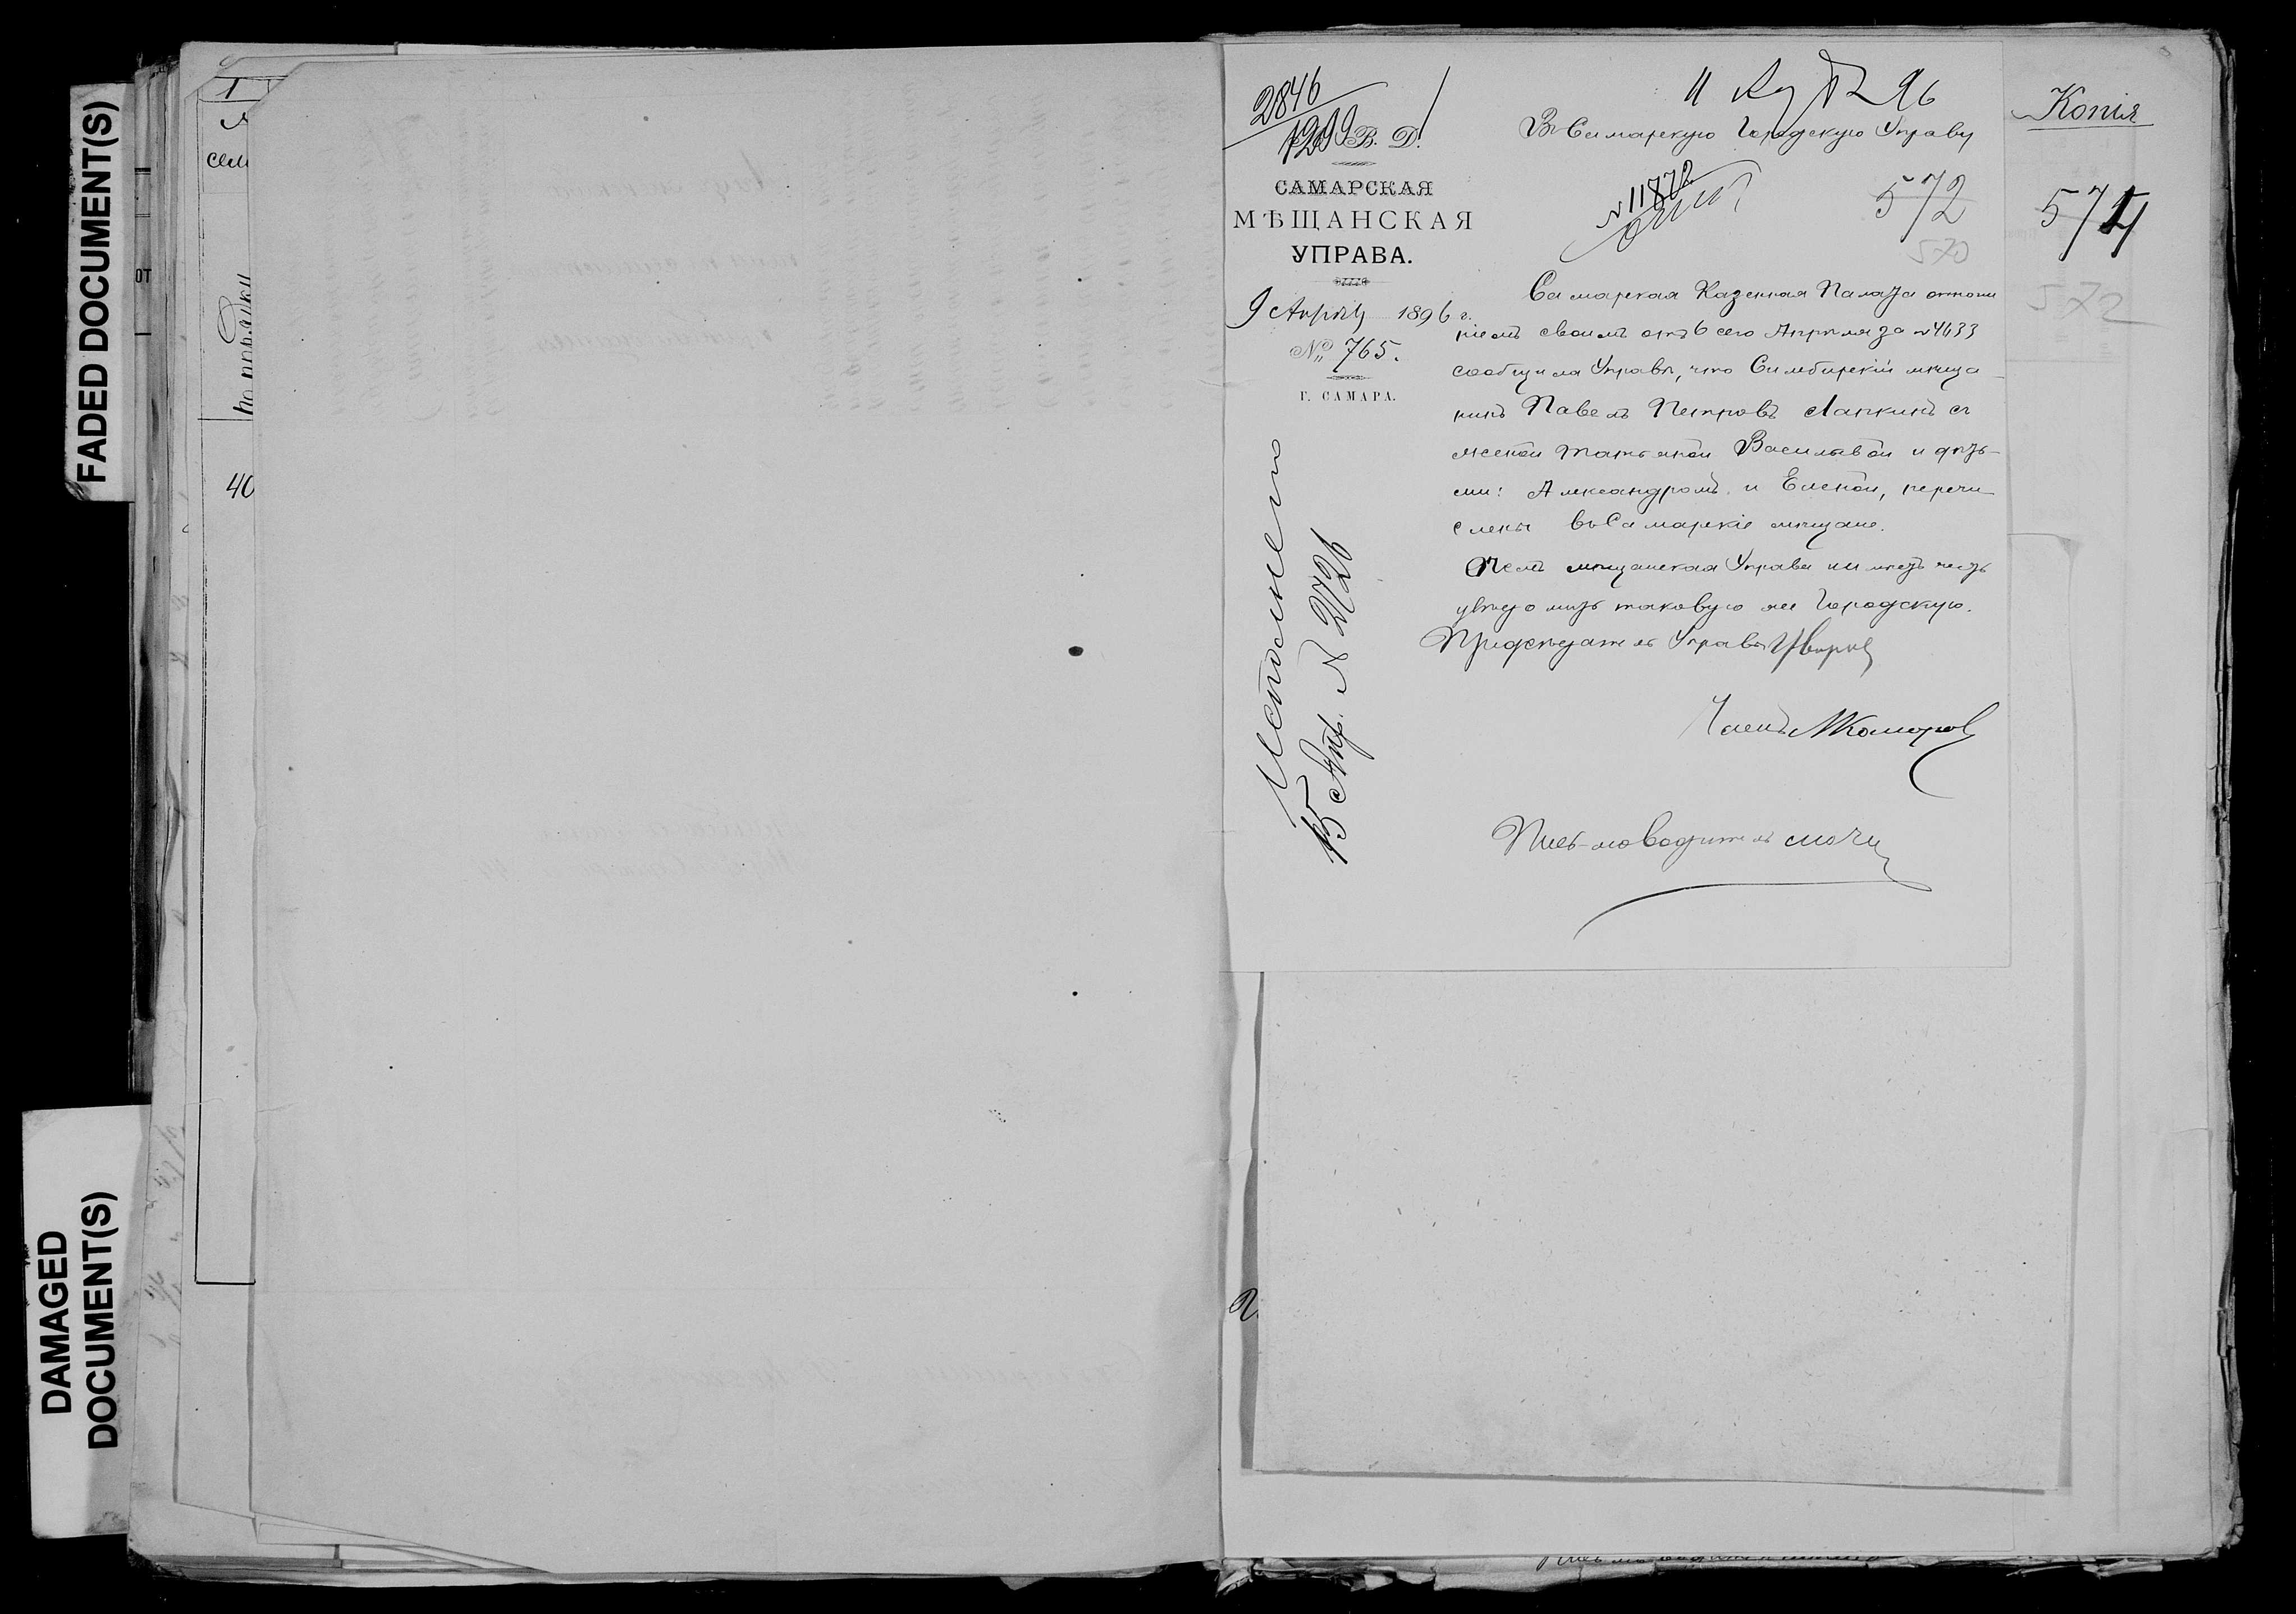 FADED DOCUMENT(S)
DAMAGED
DOCUMENT(S)
1
сем
по прыжки
40
2846
1299
В. Д.
САМАРСКАЯ
МѢЩАНСКАЯ
УПРАВА.
9 Апрѣля 1896 г.
№ 765.
Г. САМАРА.
Исполнено
15 Апр. № 2726
11 96
Въ Самарскую Городскую Управу
№ 11872
572
570
Самарская Казенная Палата отноше
ніемъ своимъ отъ 6 сего Апрѣля за № 4633
сообщила Управѣ, что Симбирскій мѣща-
нинъ Павелъ Петровъ Лапкинъ съ
женой Татьяной Васильевой и дѣть-
ми: Александромъ и Еленой, перечи-
слены въ Самарскіе мѣщане.
О чемъ мѣщанская Управа имѣетъ честь
увѣдомить таковую же Городскую.
Предсѣдатель Управы
Членъ Комаров
Письмоводитель
Копія
574
572